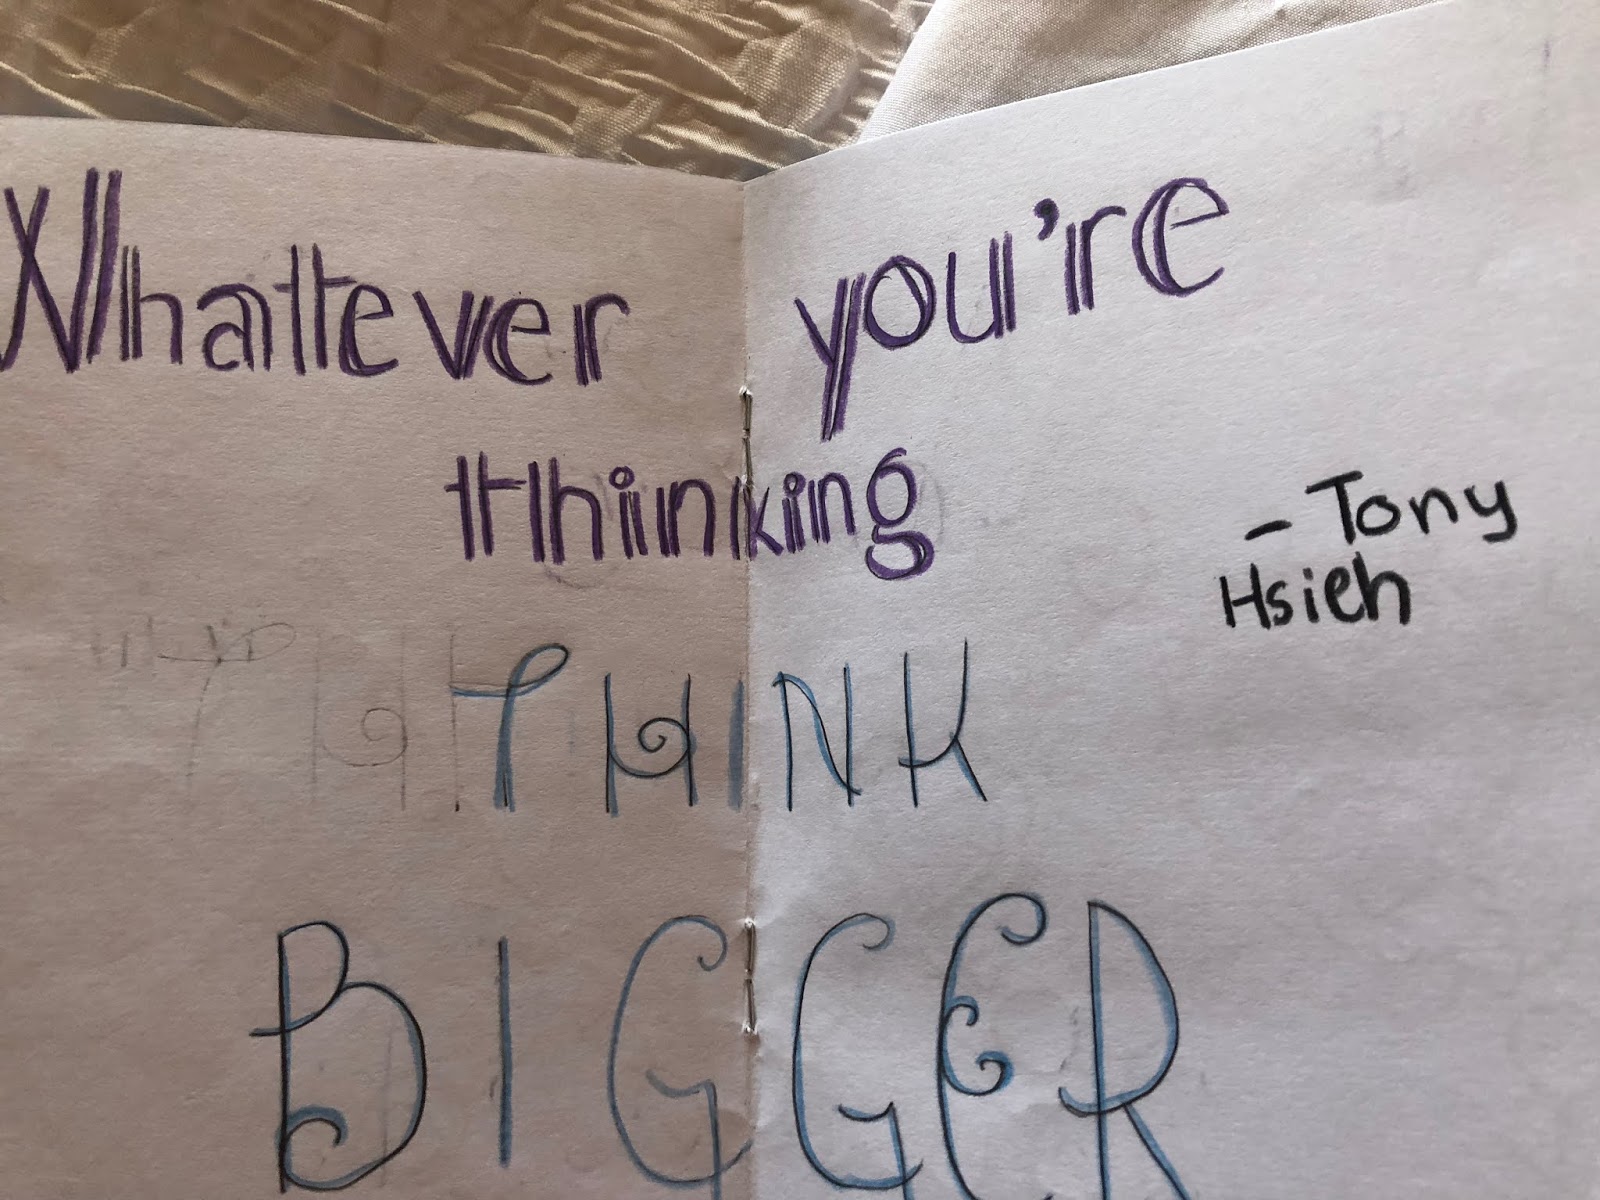 Whatever you're
thinking
- Tony
Hsieh
THINK
BIGGER